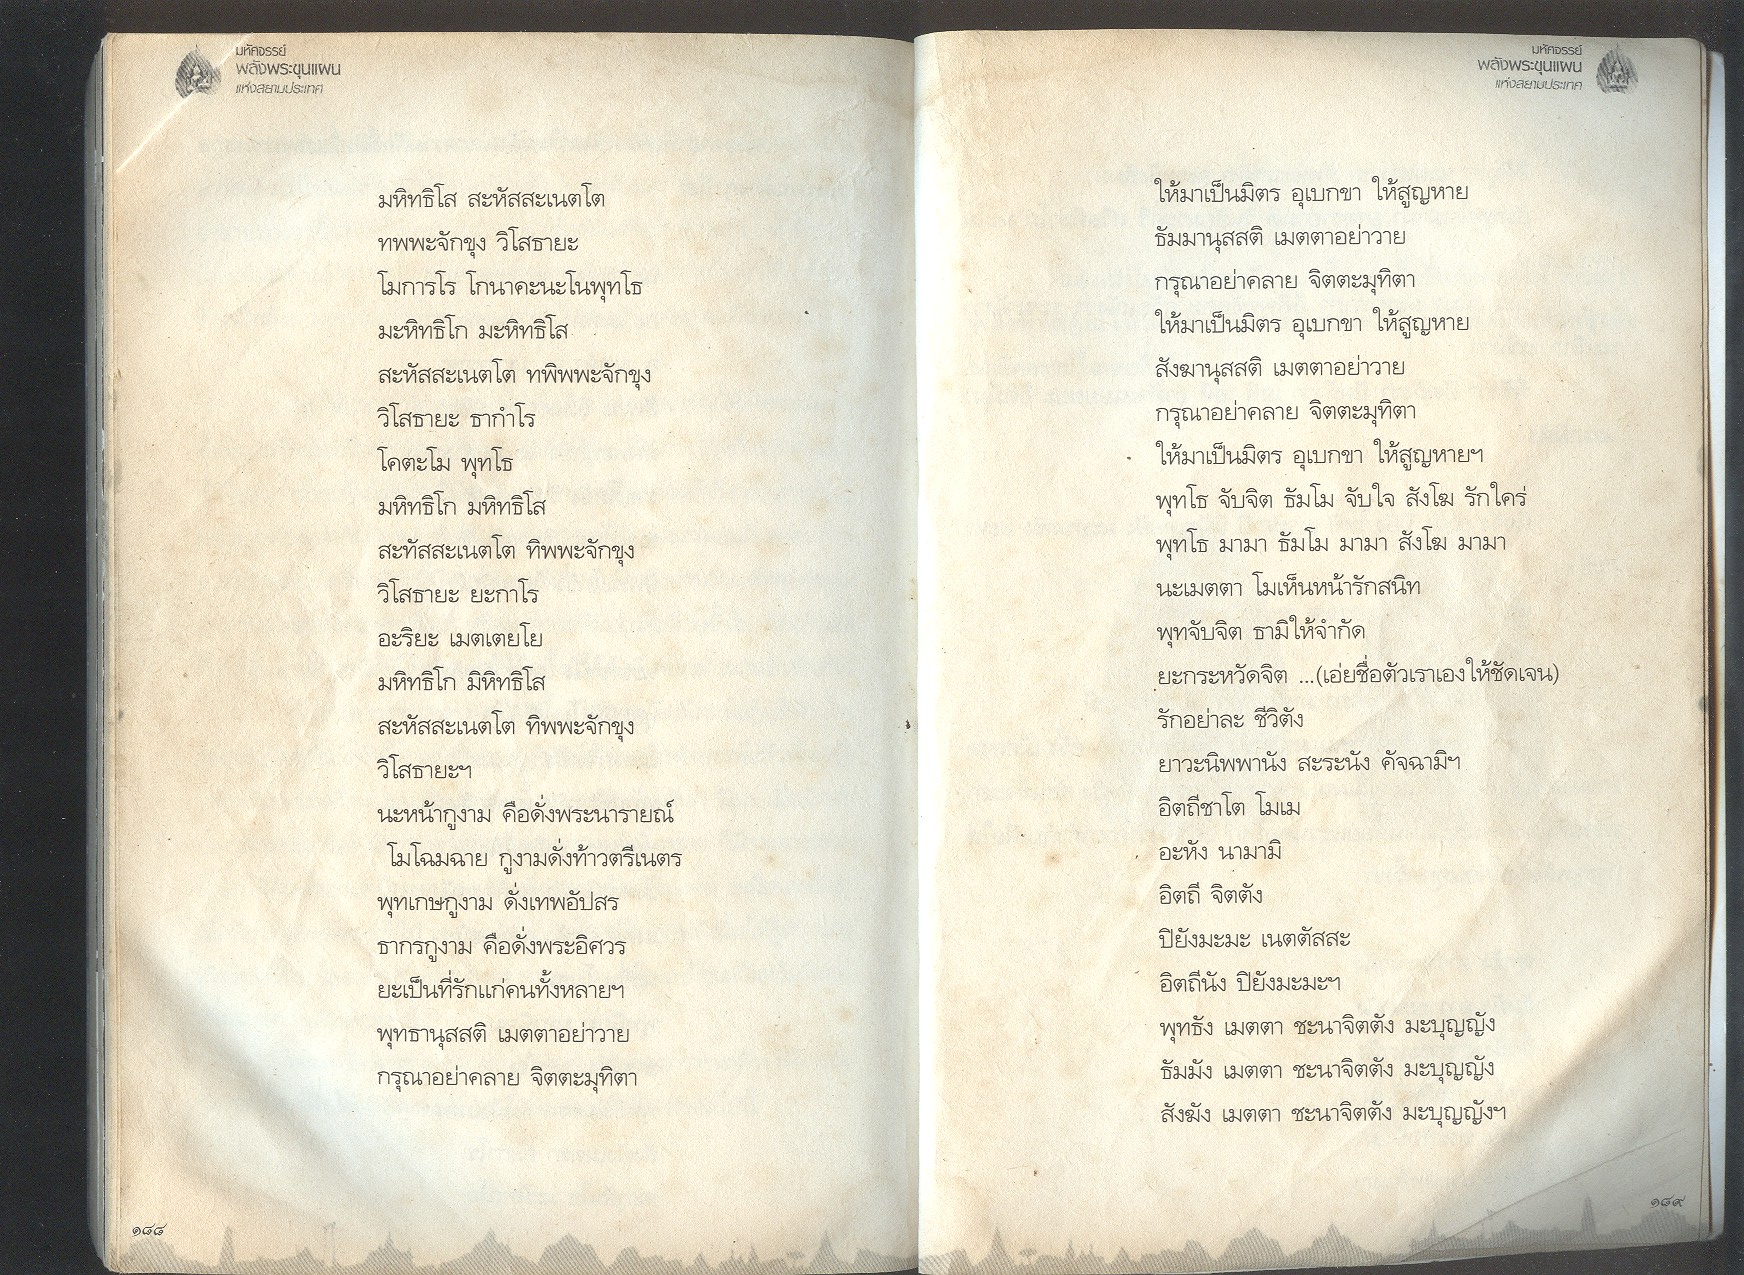 มหัศจรรย์
พลังพระขุนแผน
แห่งสยามประเทศ
มหิทธิโส สะหัสสะเนตโต
ทพพะจักขุง วิโสธายะ
โมการโร โกนาคะนะโนพุทโธ
มะหิทธิโก มะหิทธิโส
สะหัสสะเนตโต ทพิพพะจักขุง
วิโสธายะ ธากำโร
โคตะโม พุทโธ
มหิทธิโก มหิทธิโส
สะทัสสะเนตโต ทิพพะจักขุง
วิโสธายะ ยะกาโร
อะริยะ เมตเตยโย
มหิทธิโก มิหิทธิโส
สะหัสสะเนตโต ทิพพะจักขุง
วิโสธายะฯ
นะหน้ากูงาม คือดั่งพระนารายณ์
โมโฉมฉาย กูงามดั่งท้าวตรีเนตร
พุทเกษกูงาม ดั่งเทพอัปสร
ธากรกูงาม คือดั่งพระอิศวร
ยะเป็นที่รักแก่คนทั้งหลายฯ
พุทธานุสสติ เมตตาอย่าวาย
กรุณาอย่าคลาย จิตตะมุทิตา
๑๘๘
มหัศจรรย์
พลังพระขุนแผน
แห่งสยามประเทศ
ให้มาเป็นมิตร อุเบกขา ให้สูญหาย
ธัมมานุสสติ เมตตาอย่าวาย
กรุณาอย่าคลาย จิตตะมุทิตา
ให้มาเป็นมิตร อุเบกขา ให้สูญหาย
สังฆานุสสติ เมตตาอย่าวาย
กรุณาอย่าคลาย จิตตะมุทิตา
ให้มาเป็นมิตร อุเบกขา ให้สูญหายฯ
พุทโธ จับจิต ธัมโม จับใจ สังโฆ รักใคร่
พุทโธ มามา ธัมโม มามา สังโฆ มามา
นะเมตตา โมเห็นหน้ารักสนิท
พุทจับจิต ธามิให้จำกัด
ยะกระหวัดจิต ...(เอ่ยชื่อตัวเราเองให้ชัดเจน)
รักอย่าละ ชีวิตัง
ยาวะนิพพานัง สะระนัง คัจฉามิฯ
อิตถีชาโต โมเม
อะหัง นามามิ
อิตถี จิตตัง
ปิยังมะมะ เนตตัสสะ
อิตถีนัง ปิยังมะมะฯ
พุทธัง เมตตา ชะนาจิตตัง มะบุญญัง
ธัมมัง เมตตา ชะนาจิตตัง มะบุญญัง
สังฆัง เมตตา ชะนาจิตตัง มะบุญญังฯ
๑๘๙